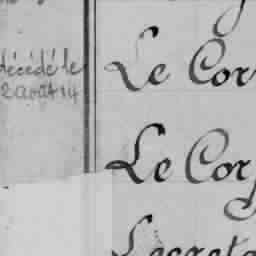 décédé le
2 août 14
Le Cor
Le Cor